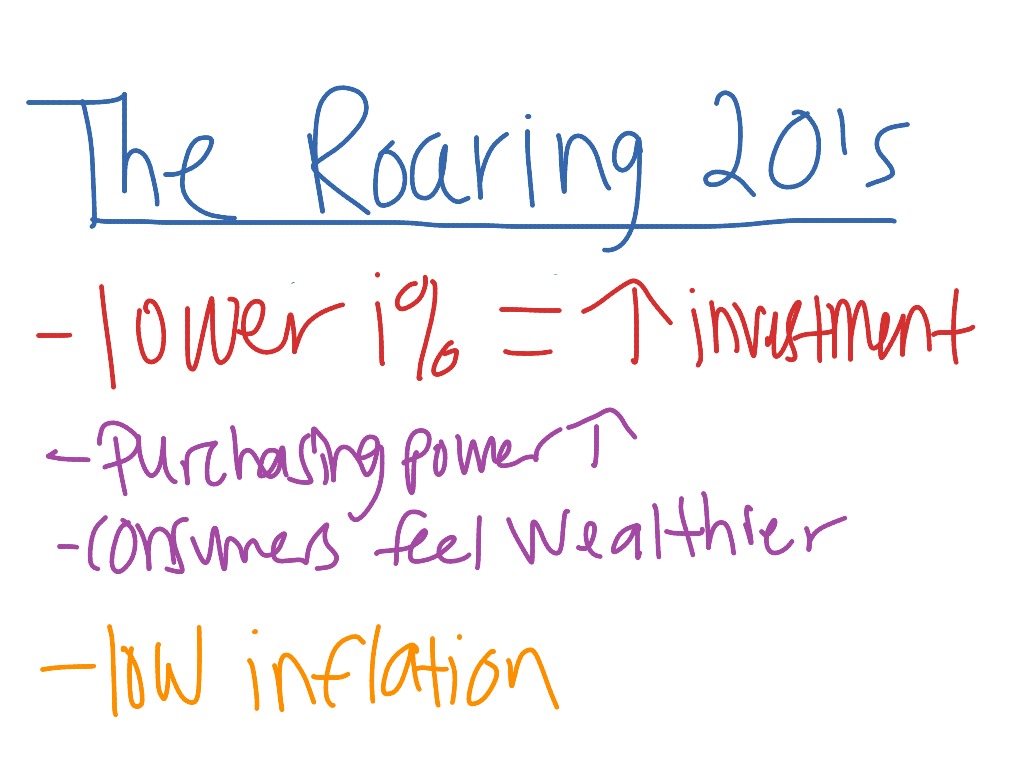 The Roaring 20's
- lower i% = ↑ investment
- Purchasing power ↑
- Consumers feel wealthier
- low inflation